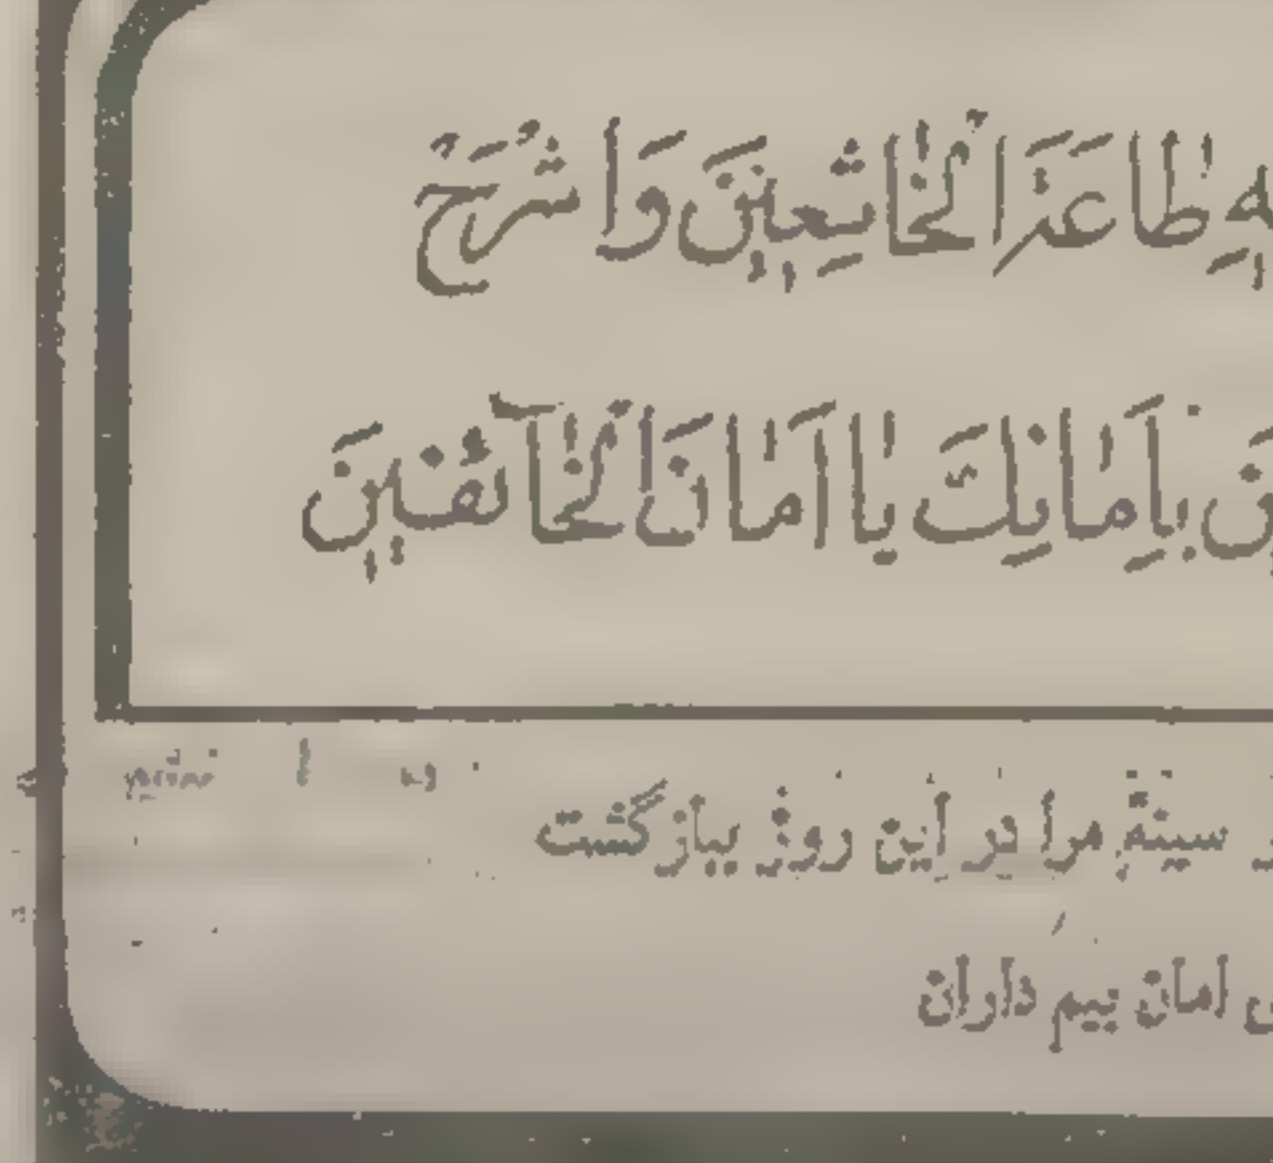 هِ طَاعَةَ الْخَاشِعِينَ وَاشْرَحْ
بِاَمَانِكَ يَا اَمَانَ الْخَآئِفِينَ
سینهٔ مرا در این روز ببازگشت
امان بیم داران